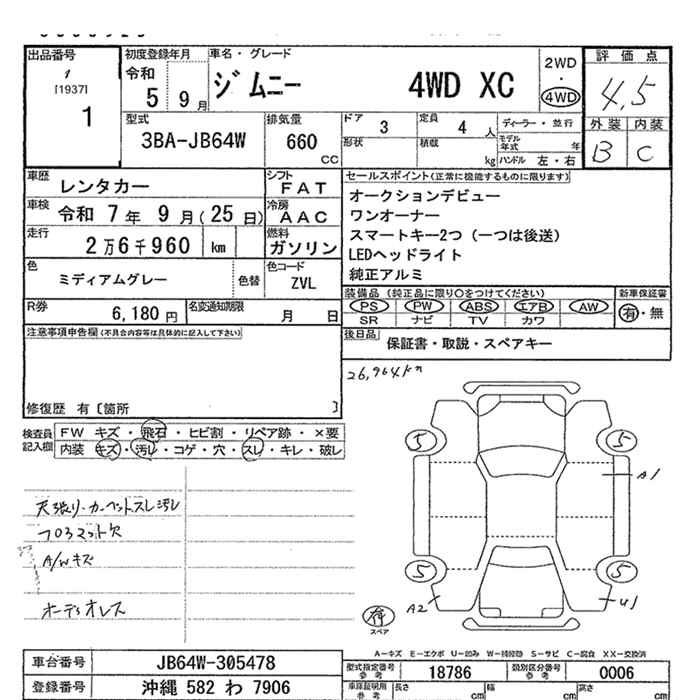 出品番号
1
[1937]
1
初度登録年月
令和
5 9 月
車名・グレード
ジムニー 4WD XC
2WD
・
4WD
評価点
4.5
外装 内装
B C
型式
3BA-JB64W
排気量
660
cc
ドア 3
定員 4 人
形状
積載 kg
ディーラー・並行
モデル年式 年
ハンドル 左・右
車歴 レンタカー
シフト FAT
車検 令和 7 年 9 月(25 日)
冷房 AAC
走行 2 万 6 千 960 km
燃料 ガソリン
色 ミディアムグレー
色替
色コード ZVL
R券 6,180 円
名変通知期限 月 日
セールスポイント(正常に機能するものに限ります)
オークションデビュー
ワンオーナー
スマートキー2つ(一つは後送)
LEDヘッドライト
純正アルミ
装備品(純正品に限り○をつけてください)
PS PW ABS エアB AW
SR ナビ TV カワ
新車保証書
有・無
後日品 保証書・取説・スペアキー
注意事項申告欄(不具合内容等は具体的に記入して下さい)
修復歴 有〔箇所 〕
26,964km
検査員記入欄
FW キズ・飛石・ヒビ割・リペア跡・×要
内装 キズ・汚レ・コゲ・穴・スレ・キレ・破レ
天張り・カーペットスレ汚レ
フロアマット欠
A/Wキズ
オーディオレス
5
5
A1
5
5
A2
U1
有
スペア
A-キズ E-エクボ U-凹み W-補修跡 S-サビ C-腐食 XX-交換済
車台番号 JB64W-305478
登録番号 沖縄 582 わ 7906
型式指定番号
参考
18786
類別区分番号
参考
0006
車庫証明用
参考
長さ cm
幅 cm
高さ cm